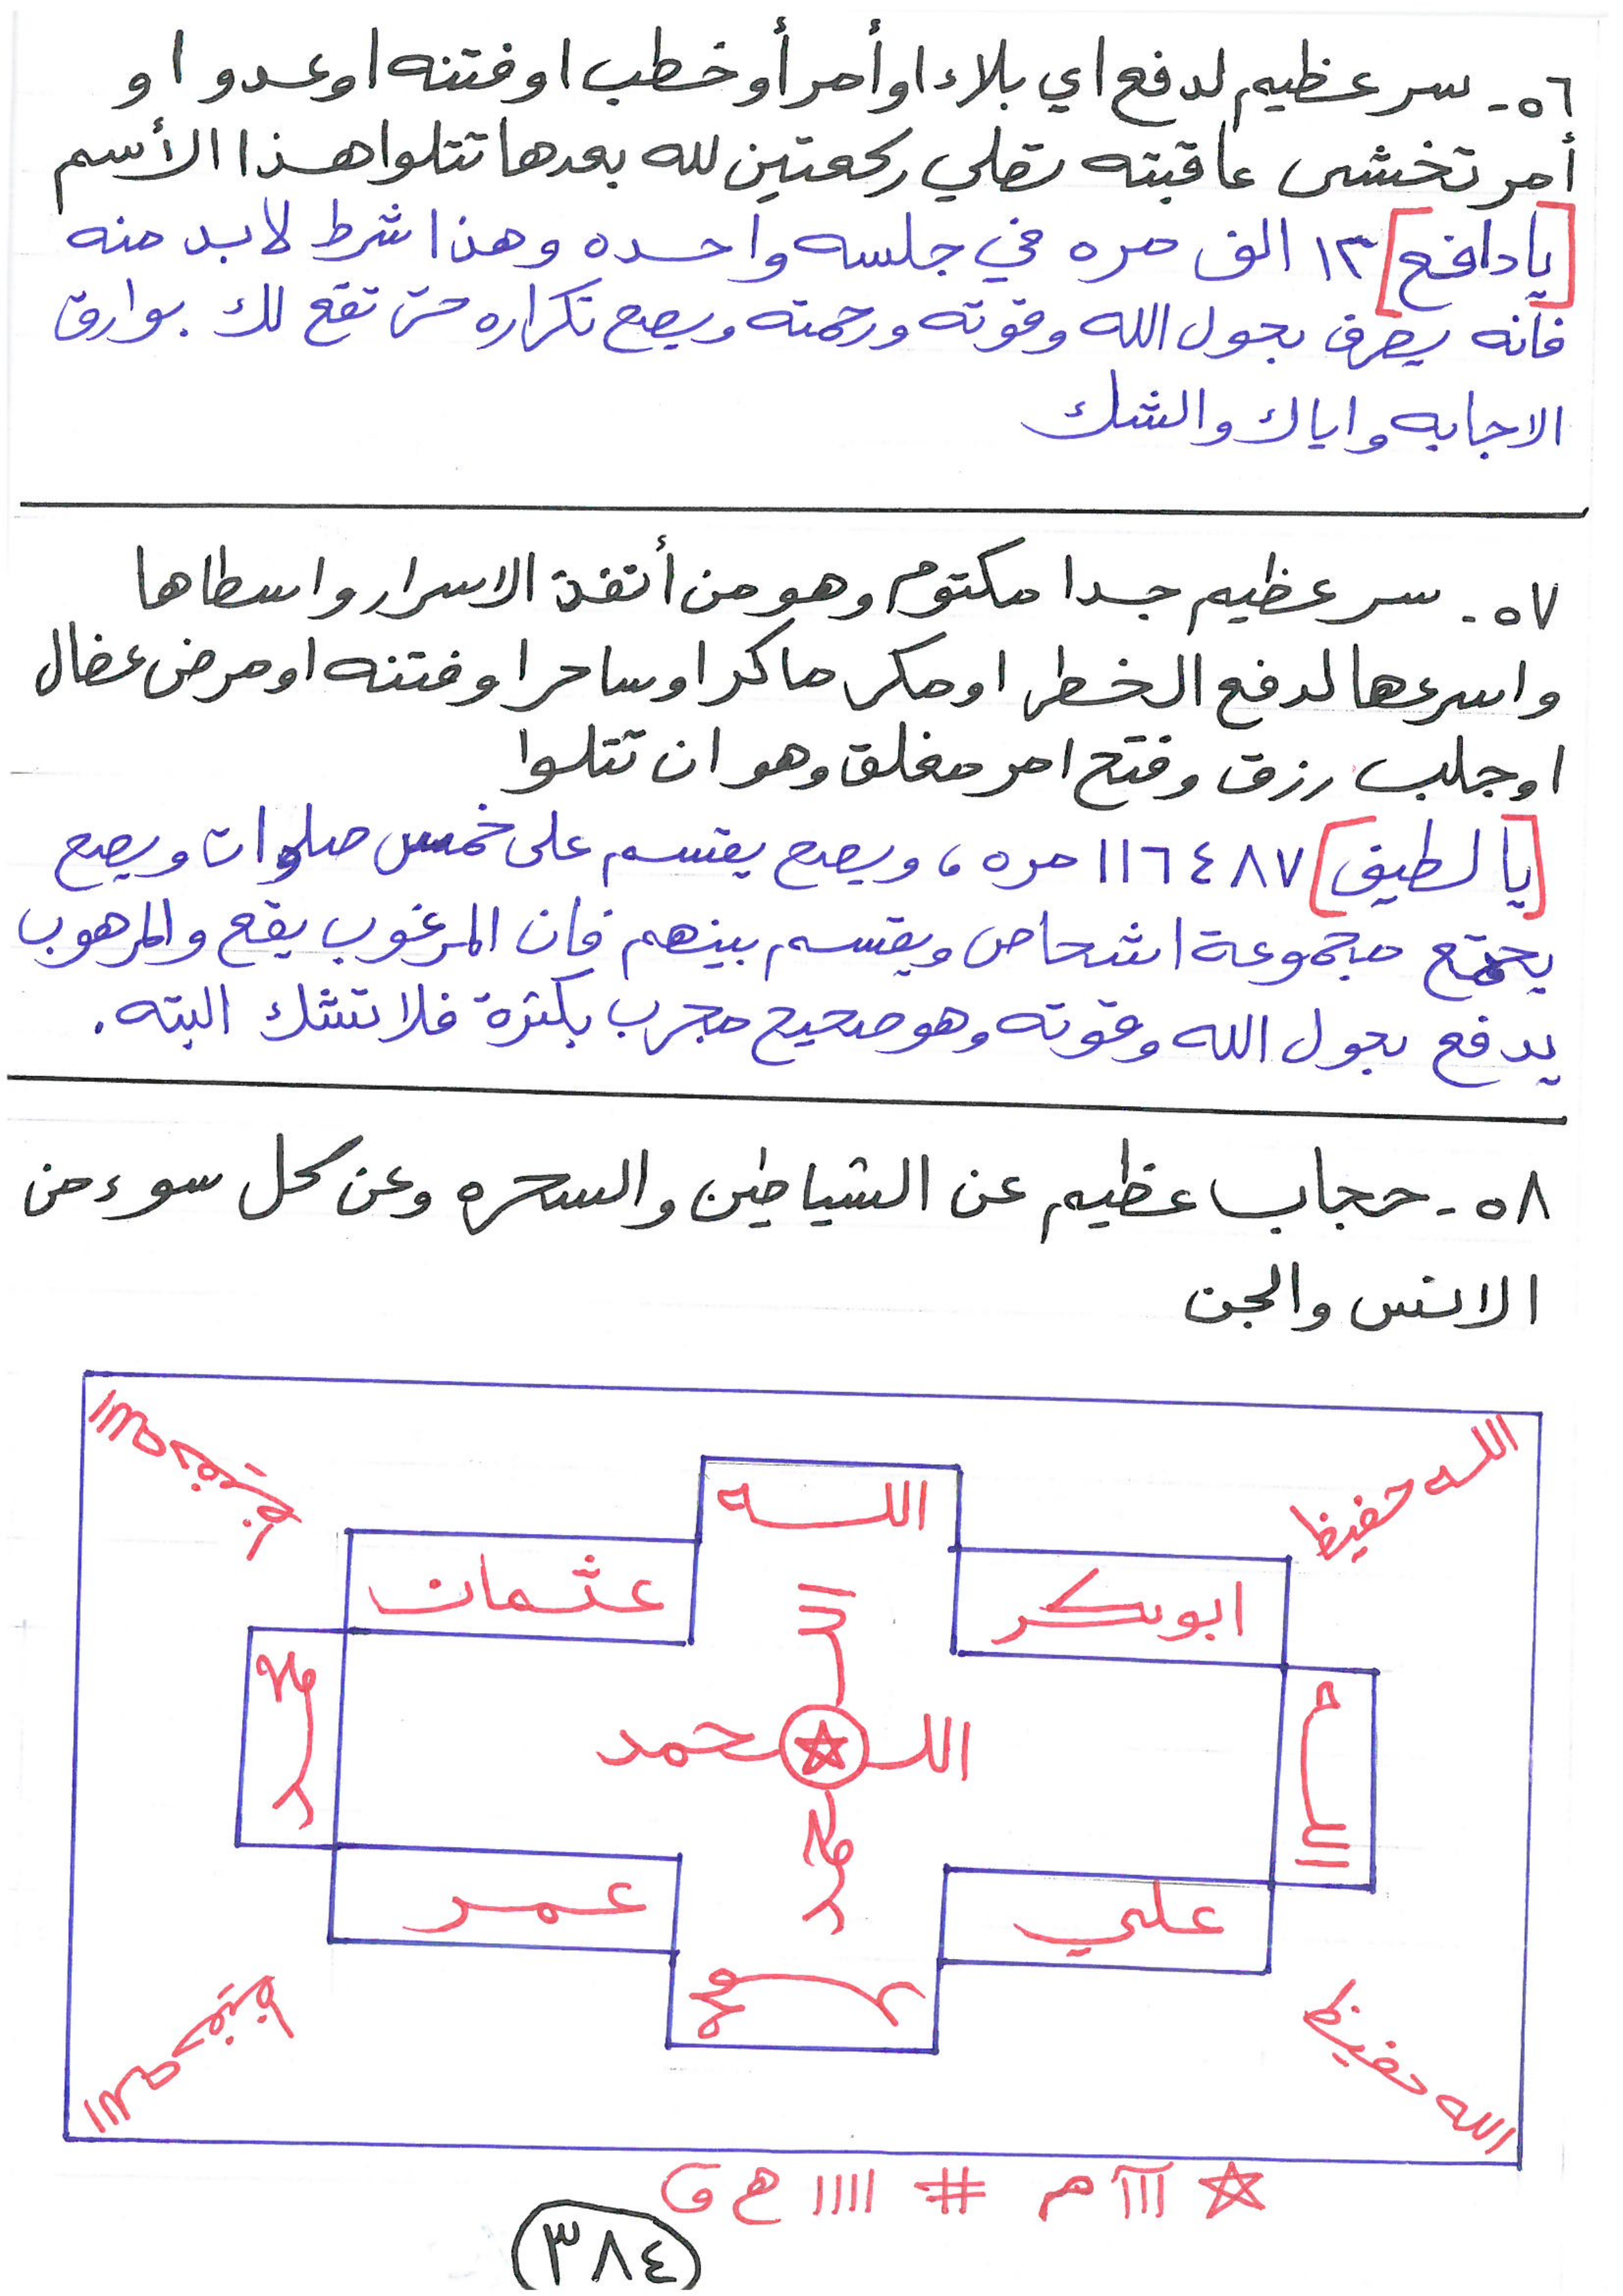 ٥٦- سر عظيم لدفع اي بلاء او أمر أو خطب او فتنه او عدو او
أمر تخشى عاقبته تصلي ركعتين لله بعدها تتلوا هذا الأسم
[يا دافع] ١٣ الف مره في جلسه واحده وهذا شرط لابد منه
فانه يصرف بحول الله وقوته ورحمته ويصح تكراره حتى تقع لك بوارق
الاجابه واياك والشك
٥٧- سر عظيم جدا مكتوم وهو من أنفذ الاسرار واسطاها
واسرعها لدفع الخطر او مكر ماكر او ساحر او فتنه او مرض عضال
او جلب رزق وفتح امر مغلق وهو ان تتلوا
[يا لطيف] ١١٦٤٨٧ مره، ويصح يقسم على خمس صلوات ويصح
يجتمع مجموعة اشخاص ويقسم بينهم فان المرغوب يقع والمرهوب
يدفع بحول الله وقوته وهو صحيح مجرب بكثرة فلا تشك البته.
٥٨- حجاب عظيم عن الشياطين والسحره وعن كل سوء من
الانس والجن
الله حفيظ
الله حفيظ
الله
ابوبكر
عثمان
الله
الله
محمد
الله
محمد
محمد
علي
عمر
محمد
الله حفيظ
الله حفيظ
☆ ااا م # اااا ه و
(٣٨٤)